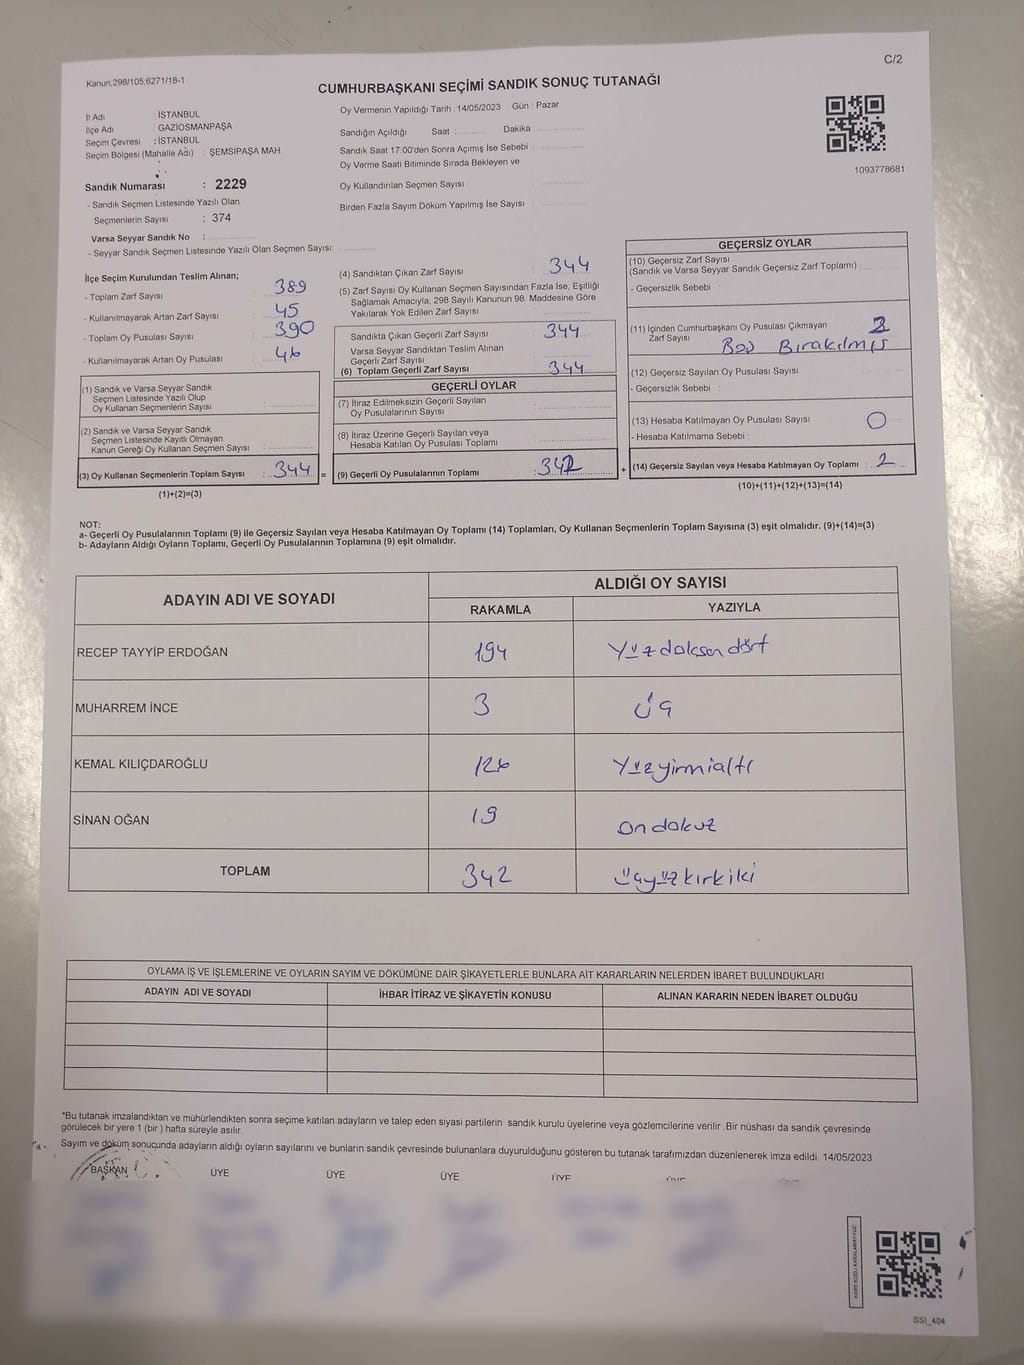 Kanun,298/105,6271/18-1
C/2
CUMHURBAŞKANI SEÇİMİ SANDIK SONUÇ TUTANAĞI
İl Adı : İSTANBUL
İlçe Adı : GAZİOSMANPAŞA
Seçim Çevresi : İSTANBUL
Seçim Bölgesi (Mahalle Adı) : ŞEMSİPAŞA MAH.
Sandık Numarası : 2229
- Sandık Seçmen Listesinde Yazılı Olan
Seçmenlerin Sayısı : 374
Varsa Seyyar Sandık No :
- Seyyar Sandık Seçmen Listesinde Yazılı Olan Seçmen Sayısı:
Oy Vermenin Yapıldığı Tarih : 14/05/2023 Gün : Pazar
Sandığın Açıldığı Saat : Dakika :
Sandık Saat 17:00'den Sonra Açımış İse Sebebi :
Oy Verme Saati Bitiminde Sırada Bekleyen ve
Oy Kullandırılan Seçmen Sayısı :
Birden Fazla Sayım Döküm Yapılmış İse Sayısı :
1093778681
İlçe Seçim Kurulundan Teslim Alınan;
- Toplam Zarf Sayısı : 389
- Kullanılmayarak Artan Zarf Sayısı : 45
- Toplam Oy Pusulası Sayısı : 390
- Kullanılmayarak Artan Oy Pusulası : 46
(1) Sandık ve Varsa Seyyar Sandık
Seçmen Listesinde Yazılı Olup
Oy Kullanan Seçmenlerin Sayısı :
(2) Sandık ve Varsa Seyyar Sandık
Seçmen Listesinde Kayıtlı Olmayan
Kanun Gereği Oy Kullanan Seçmen Sayısı :
(3) Oy Kullanan Seçmenlerin Toplam Sayısı : 344 =
(1)+(2)=(3)
(4) Sandıktan Çıkan Zarf Sayısı : 344
(5) Zarf Sayısı Oy Kullanan Seçmen Sayısından Fazla İse, Eşitliği
Sağlamak Amacıyla, 298 Sayılı Kanunun 98. Maddesine Göre
Yakılarak Yok Edilen Zarf Sayısı :
Sandıkta Çıkan Geçerli Zarf Sayısı : 344
Varsa Seyyar Sandıktan Teslim Alınan
Geçerli Zarf Sayısı :
(6) Toplam Geçerli Zarf Sayısı : 344
GEÇERLİ OYLAR
(7) İtiraz Edilmeksizin Geçerli Sayılan
Oy Pusulalarının Sayısı :
(8) İtiraz Üzerine Geçerli Sayılan veya
Hesaba Katılan Oy Pusulası Toplamı :
(9) Geçerli Oy Pusulalarının Toplamı : 342 +
GEÇERSİZ OYLAR
(10) Geçersiz Zarf Sayısı
(Sandık ve Varsa Seyyar Sandık Geçersiz Zarf Toplamı) :
- Geçersizlik Sebebi :
(11) İçinden Cumhurbaşkanı Oy Pusulası Çıkmayan 2
Zarf Sayısı Boş Bırakılmış
(12) Geçersiz Sayılan Oy Pusulası Sayısı :
- Geçersizlik Sebebi :
(13) Hesaba Katılmayan Oy Pusulası Sayısı : 0
- Hesaba Katılmama Sebebi :
(14) Geçersiz Sayılan veya Hesaba Katılmayan Oy Toplamı : 2
(10)+(11)+(12)+(13)=(14)
NOT:
a- Geçerli Oy Pusulalarının Toplamı (9) ile Geçersiz Sayılan veya Hesaba Katılmayan Oy Toplamı (14) Toplamları, Oy Kullanan Seçmenlerin Toplam Sayısına (3) eşit olmalıdır. (9)+(14)=(3)
b- Adayların Aldığı Oyların Toplamı, Geçerli Oy Pusulalarının Toplamına (9) eşit olmalıdır.
ADAYIN ADI VE SOYADI ALDIĞI OY SAYISI
RAKAMLA YAZIYLA
RECEP TAYYİP ERDOĞAN 194 Yüzdoksandört
MUHARREM İNCE 3 Üç
KEMAL KILIÇDAROĞLU 126 Yüzyirmialtı
SİNAN OĞAN 19 Ondokuz
TOPLAM 342 Üçyüzkırkiki
OYLAMA İŞ VE İŞLEMLERİNE VE OYLARIN SAYIM VE DÖKÜMÜNE DAİR ŞİKAYETLERLE BUNLARA AİT KARARLARIN NELERDEN İBARET BULUNDUKLARI
ADAYIN ADI VE SOYADI İHBAR İTİRAZ VE ŞİKAYETİN KONUSU ALINAN KARARIN NEDEN İBARET OLDUĞU
*Bu tutanak imzalandıktan ve mühürlendikten sonra seçime katılan adayların ve talep eden siyasi partilerin sandık kurulu üyelerine veya gözlemcilerine verilir. Bir nüshası da sandık çevresinde
görülecek bir yere 1 (bir ) hafta süreyle asılır.
Sayım ve döküm sonucunda adayların aldığı oyların sayılarını ve bunların sandık çevresinde bulunanlara duyurulduğunu gösteren bu tutanak tarafımızdan düzenlenerek imza edildi. 14/05/2023
BAŞKAN ÜYE ÜYE ÜYE ÜYE
SSI_404